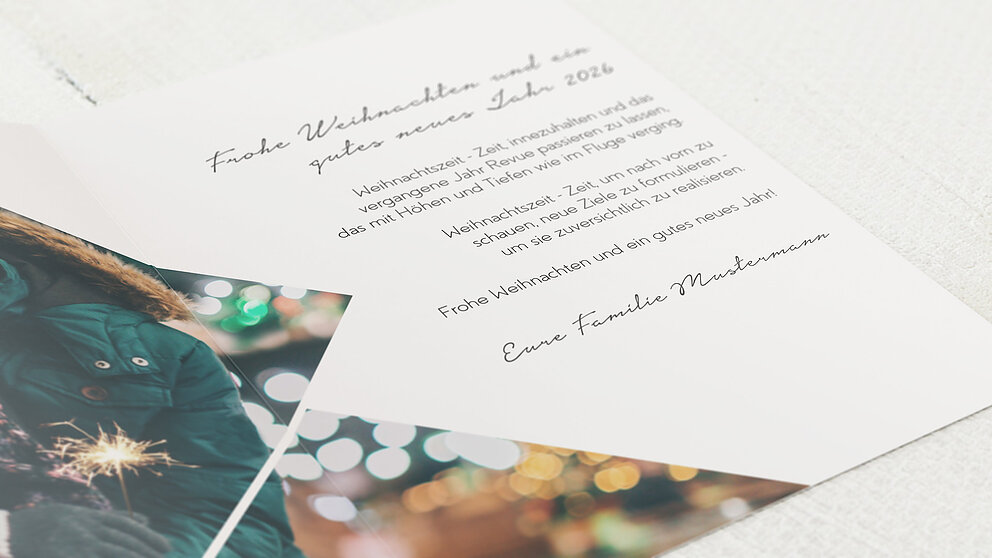 Frohe Weihnachten und ein
gutes neues Jahr 2026
Weihnachtszeit - Zeit, innezuhalten und das
vergangene Jahr Revue passieren zu lassen,
das mit Höhen und Tiefen wie im Fluge verging.
Weihnachtszeit - Zeit, um nach vorn zu
schauen, neue Ziele zu formulieren -
um sie zuversichtlich zu realisieren.
Frohe Weihnachten und ein gutes neues Jahr!
Eure Familie Mustermann